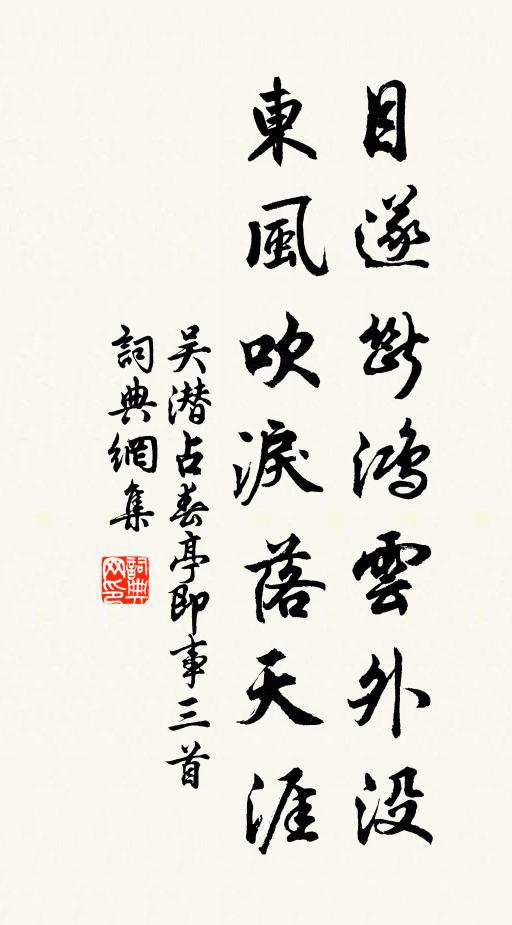 目遂斷鴻雲外没
東風吹淚落天涯
吴潛占春亭即事三首
詞典網集
詞典网印